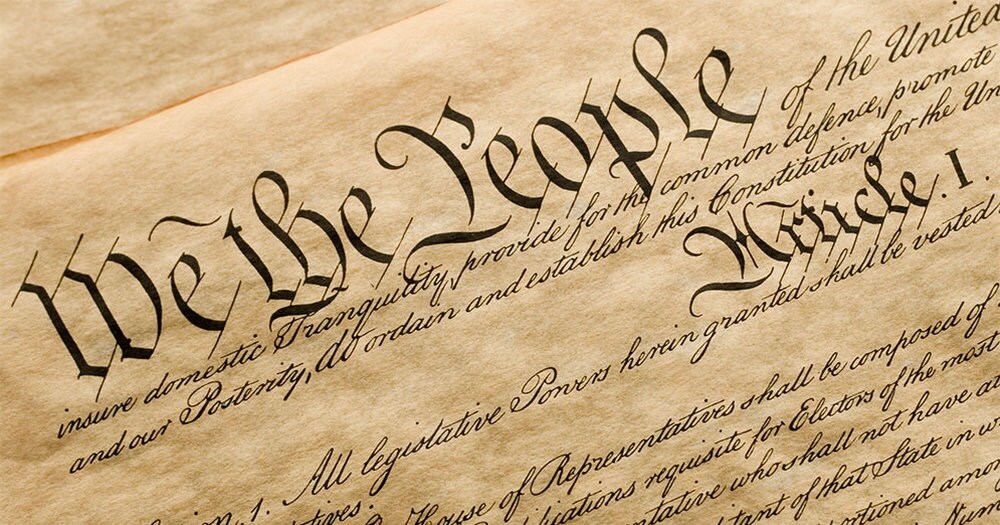 We the People of the United
insure domestic Tranquility, provide for the common defence, promote
and our Posterity, do ordain and establish this Constitution for the Un
Article. I.
n. 1. All legislative Powers herein granted shall be vested
tives.
House of Representatives shall be composed of
ications requisite for Electors of the most
ntative who shall not have at
tant of that State in w
ntioned amo
Num